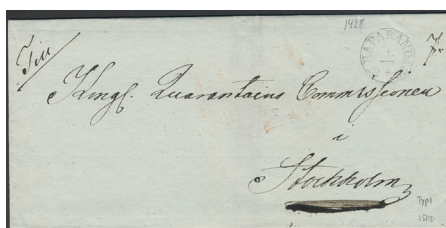 1428
Till
HAPARANDA
Kongl. Quarantains Commissionen
i
Stockholm
Typ 1
1500